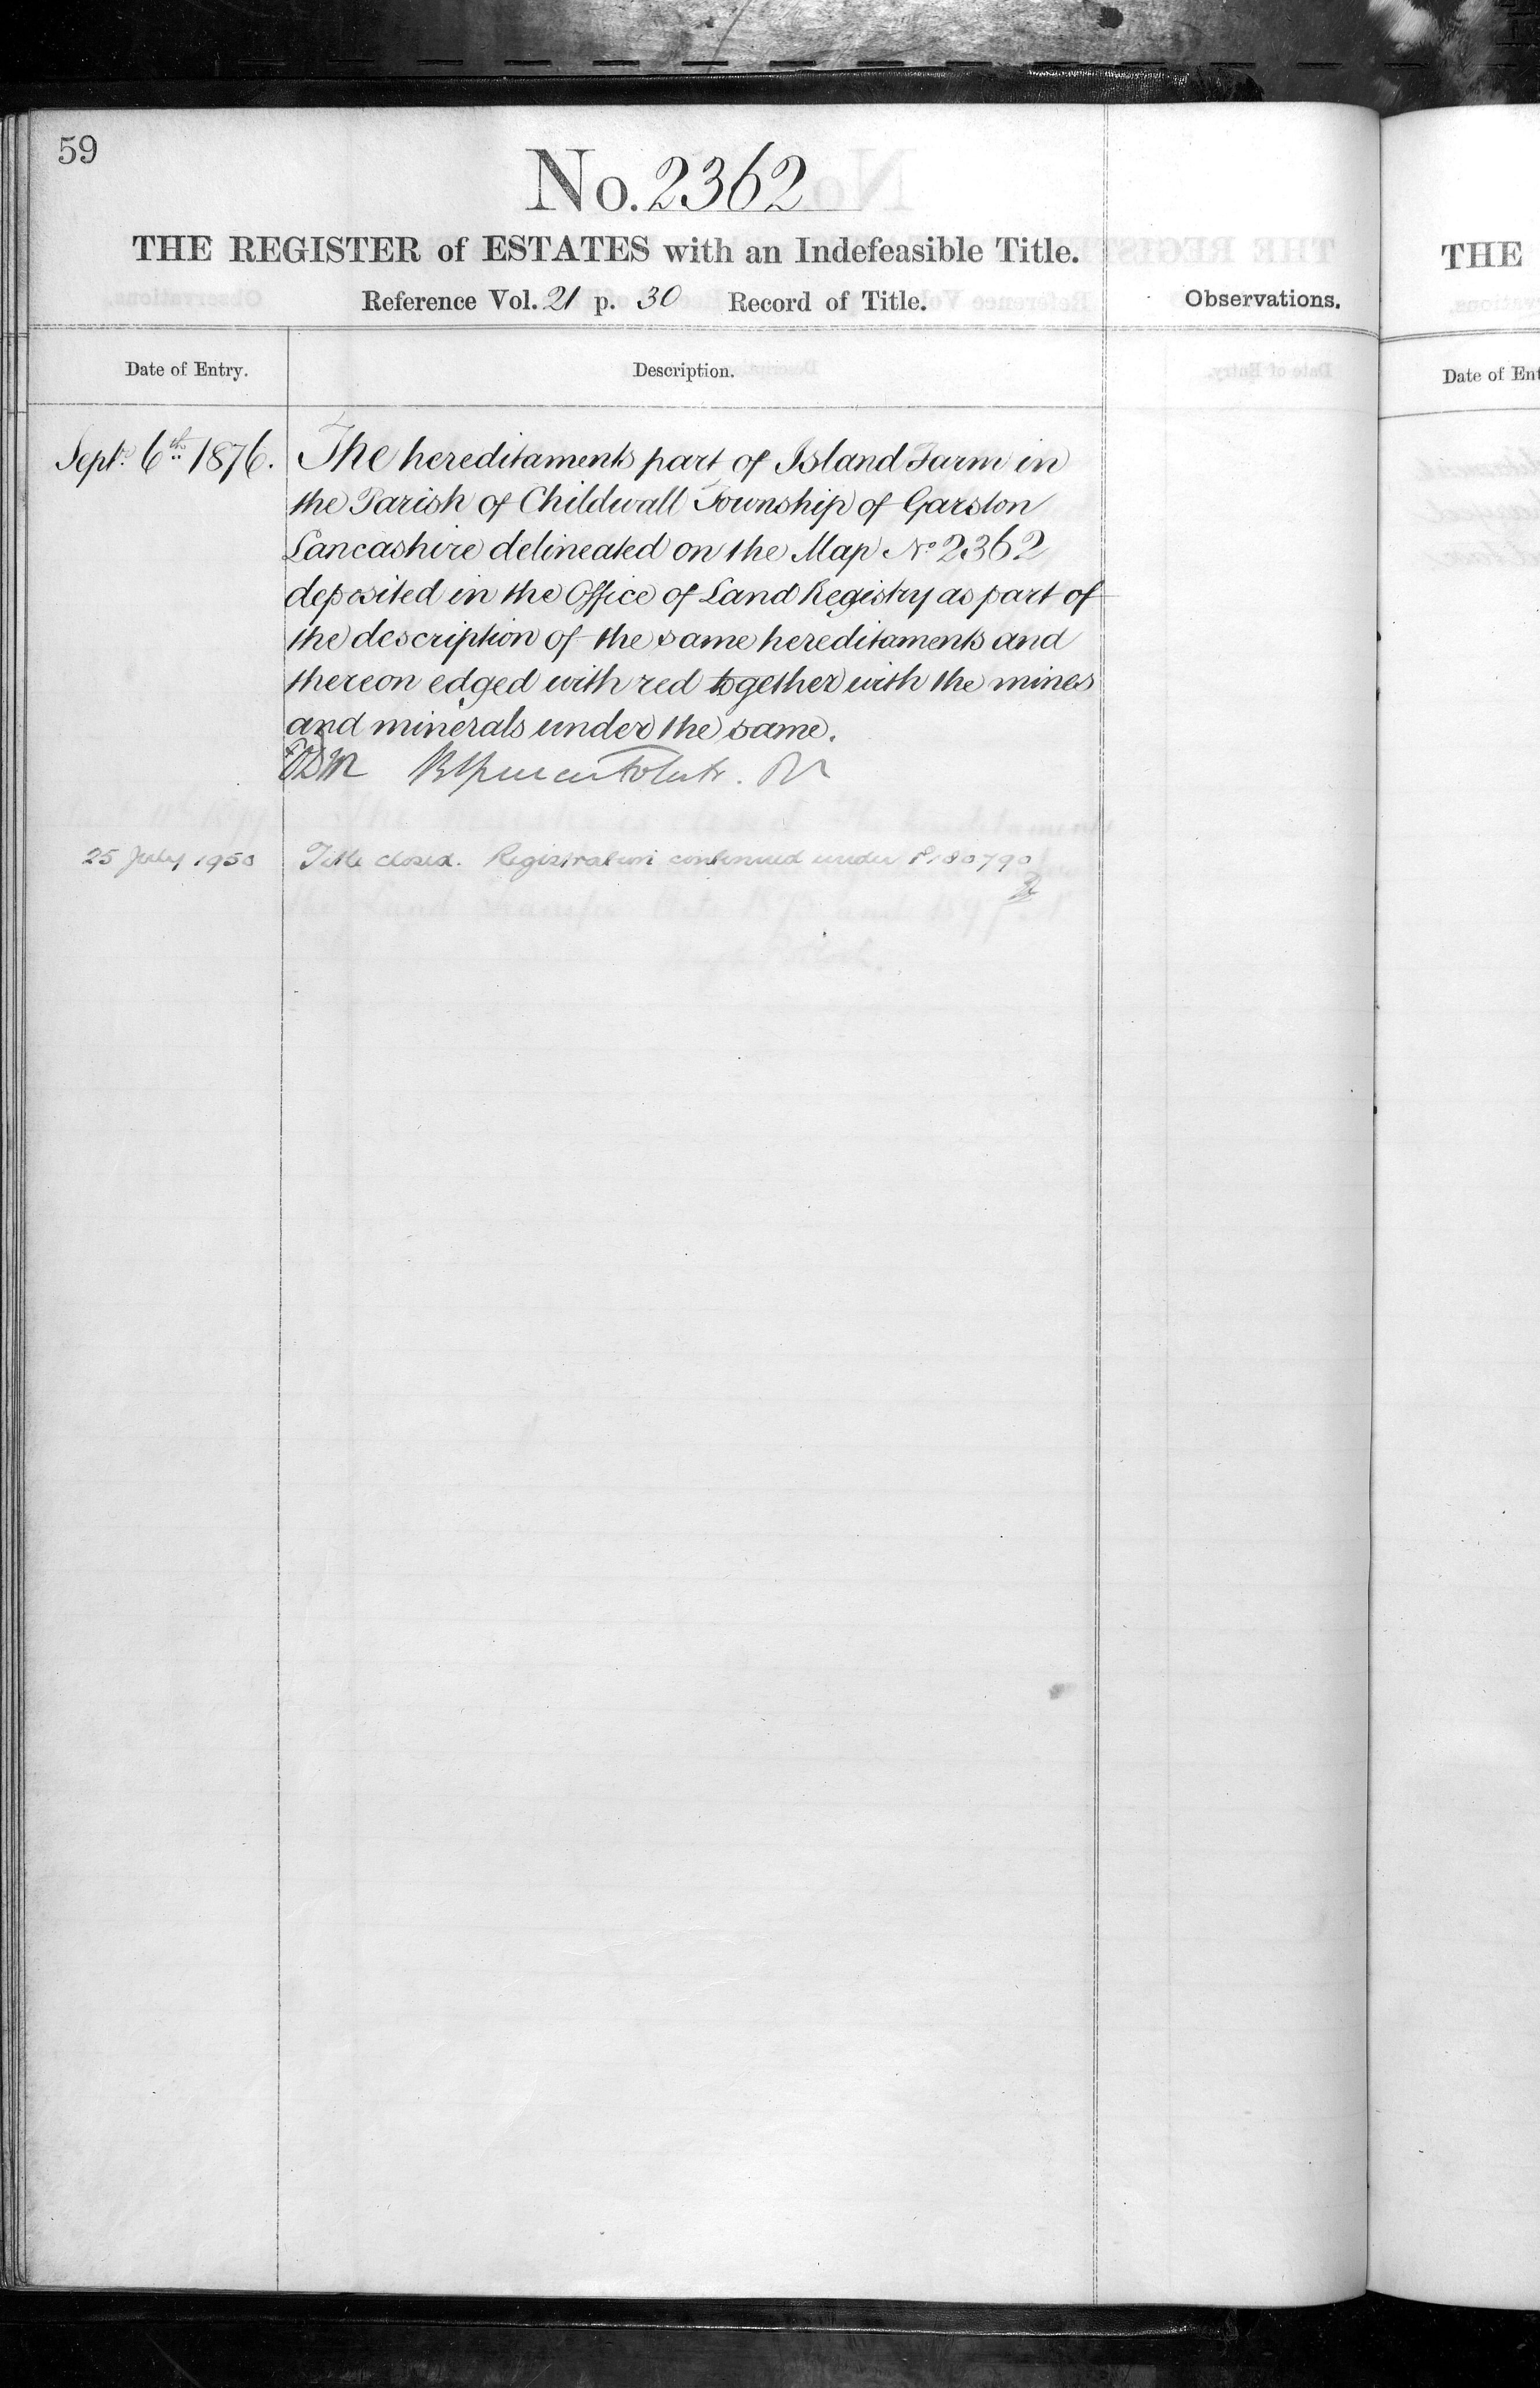 59
No. 2362
THE REGISTER of ESTATES with an Indefeasible Title.
Reference Vol. 21 p. 30 Record of Title.
Observations.
Date of Entry.
Description.
Sept. 6th 1876.
The hereditaments part of Island Farm in
the Parish of Childwall Township of Garston
Lancashire delineated on the Map No 2362
deposited in the Office of Land Registry as part of
the description of the same hereditaments and
thereon edged with red together with the mines
and minerals under the same.
25 July 1950
Title closed. Registration continued under P180790
THE
Date of Ent